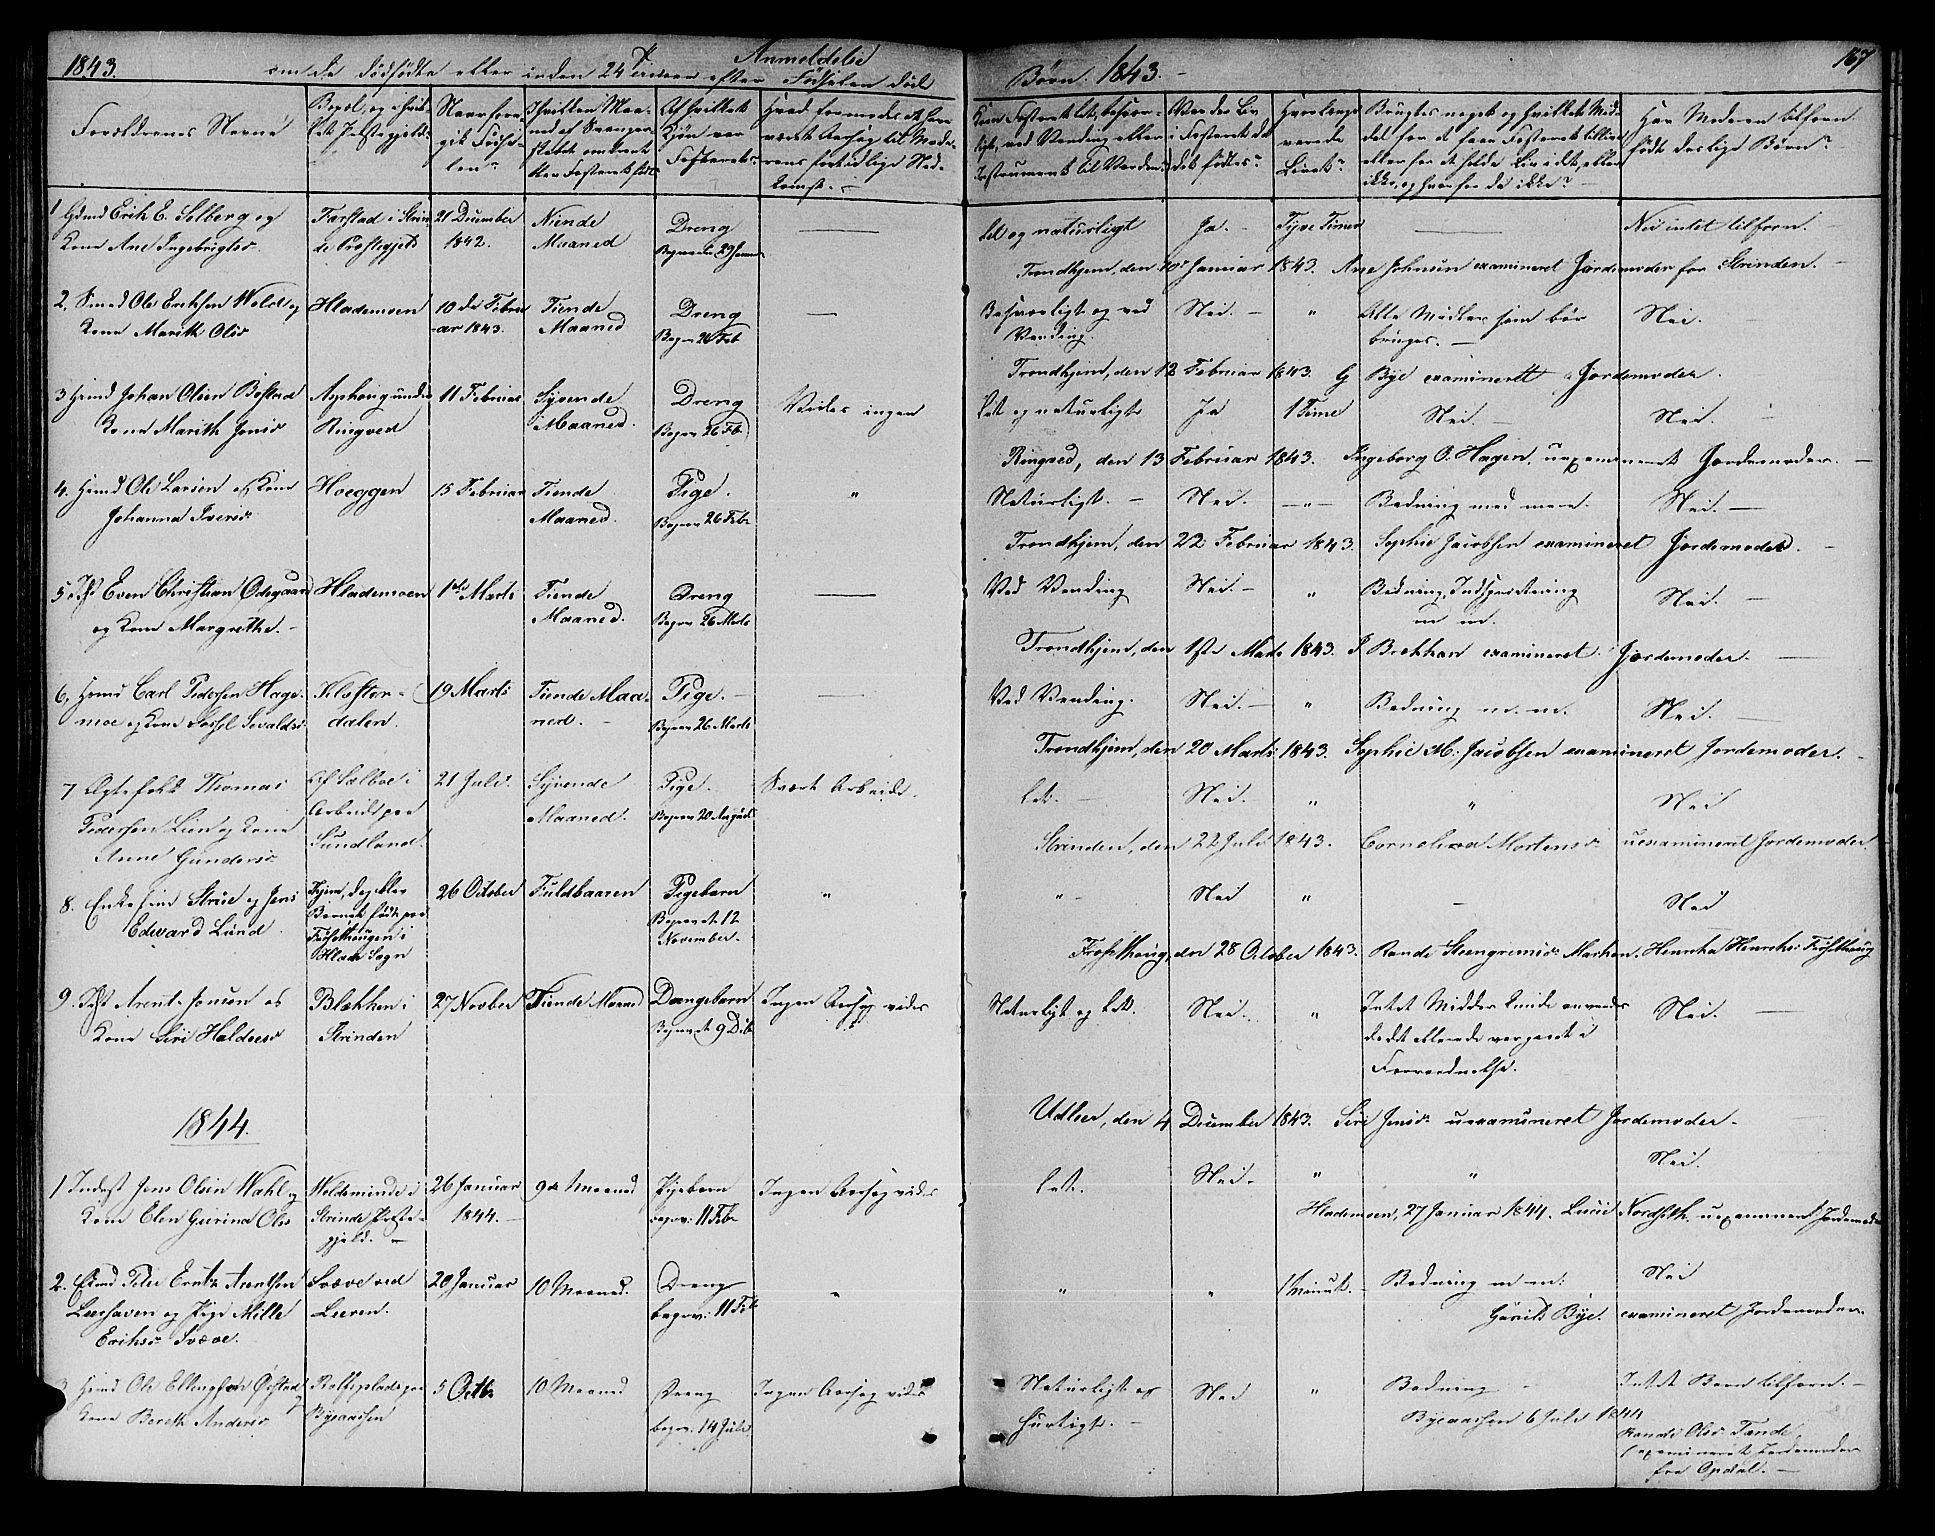 1843.
Anmeldelse
om de dödfödte eller inden 24 Timer efter Födselen döde
Börn. 1843.
167
Forældrenes Navne
Bopæl, og i hvilket Præstegjeld
Naar foregik Födselen?
I hvilken Maaned af Svangerskabet omtrent blev Fosteret födt
Af hvilket Kjön var Fosteret?
Hvad formodes at have været Aarsag til Moderens fortidlige Nedkomst.
Kom Fosteret let, besværligt, ved Vending eller Instrument til Verden?
Var der Liv i Fosteret da det födtes?
Hvorlenge varede Livet?
Brugtes noget og hvilket Middel for at faae Fosteret tillive eller for at holde Liv i det, eller ikke, og hvorfor da ikke?
Har Moderen tilforn födt deslige Börn?
1 Gdmd Erik E. Solberg og
Kone Ane Ingebrigtsd.
Farstad i Strinde Præstegjeld
21 December 1842.
Niende Maaned
Dreng
Begravet 29 Januar
Let og naturligt
Ja.
Tyve Timer
Nei intet tilforn.
Trondhjem, den 10 Januar 1843. Ane Johnsen examineret Jordemoder for Strinden.
2. Smed Ole Eriksen Wold og
Kone Marith Olsd
Hlademoen
10de Februar 1843.
Tiende Maaned
Dreng
Begr 26 Feb
Besværligt og ved Vending.
Nei.
"
Alle Midler som bör bruges.
Nei.
Trondhjem, den 12 Februar 1843. G Bye examineret Jordemoder.
3 Hmd Johan Olsen
Kone Marith Jensd
Ringved
11 Februar
Syvende Maaned.
Dreng
Begrav 26 Feb
Vides ingen
Let og naturligt
Ja
1 Time
Nei.
Nei.
Ringved, den 13 Februar 1843. Ingeborg O. Hagen, uexamineret Jordemoder.
4. Hmd Ole Larsen og Kone
Johanna Iversd
Hoeggen
15 Februar
Tiende Maaned.
Pige.
Begrav 26 Feb
"
Naturligt.
Nei.
"
Badning med mere.
Nei.
Trondhjem, den 22 Februar 1843. Sophie Jacobsen examineret Jordemoder.
5. Even Christian Ödegaard
og Kone Margrethe.
Hlademoen
1ste Marts
Tiende Maaned.
Dreng
Begrav 26 Marts
Ved Vending
Nei.
"
Badning, Indspröitning m m.
Nei.
Trondhjem, den 1ste Marts 1843. P Brekkan examineret Jordemoder.
6. Hmd Carl Pedersen Hagemoe og Kone Sivaldsd.
Klosterdalen.
19 Marts
Tiende Maaned.
Pige.
Begrav 26 Marts
Ved Vending.
Nei.
"
Badning m. m.
Nei.
Trondhjem, den 20 Marts 1843. Sophie M. Jacobsen examineret Jordemoder.
7 Ægtefolk Thomas
Pedersen Lien og Kone
Anne Gundersd
Af Sælboe i Arbeide paa Sundland.
21 Juli.
Syvende Maaned.
Pige.
Begrav 20 August
Svært Arbeide.
Let.
Nei.
"
"
Nei
Strinden, den 22 Juli 1843. Mortensd uexamineret Jordemoder.
8. Enke Strøe og Jens
Edvard Lund.
Barnet födt paa i Hlade Sogn
26 October
Fuldbaaren
Pigebarn
Begravet 12 November.
"
"
Nei
"
Nei
den 28 October 1843. Rande Steengrimsd
9. Inst Arent Jonsen og
Kone Siri Haldorsd
Blekken i Strinden
27 Novber
Tiende Maaned
Drengebarn
Begravet 9 Dcb
Ingen Aarsag vides
Naturligt og let.
Nei.
"
Intet Middel kunde anvendes da det allerede var gaaet i Forraadnelse.
Nei.
Udleer, den 4 December 1843. Siri Jensd uexamineret Jordemoder.
1844.
1 Inderst Jens Olsen Wahl og
Kone Elen Gurina Olsd
Weldeminde i Strinde Præstegjeld.
26 Januar 1844.
9de Maaned
Pigebarn
begrav: 11 Feb
Ingen Aarsag vides
Let.
Nei.
"
"
Nei.
Hlademoen, 27 Januar 1844. Lucie Nordseth, uexamineret Jordemoder
2. Peter Arentsen
Leerhaven og Pige Mille
Eriksd Svæve.
Svæve ved Leeren.
20 Januar
10 Maaned.
Dreng
begrav: 11 Feb
"
"
"
1 Minut.
Badning m m:
Nei
Bye. examineret Jordemoder.
3 Hmd Ole Ellingsen
Kone Bereth Andersd
Byeaasen
5
10 Maaned
Dreng
begr. 14 Juli
Ingen Aarsag vides
Naturligt og hurtigt.
Nei
"
Badning
Intet Barn tilforn.
Byeaasen 6 Juli 1844
Rande Olsd Tande,
examineret Jordemoder
fra Opdal.